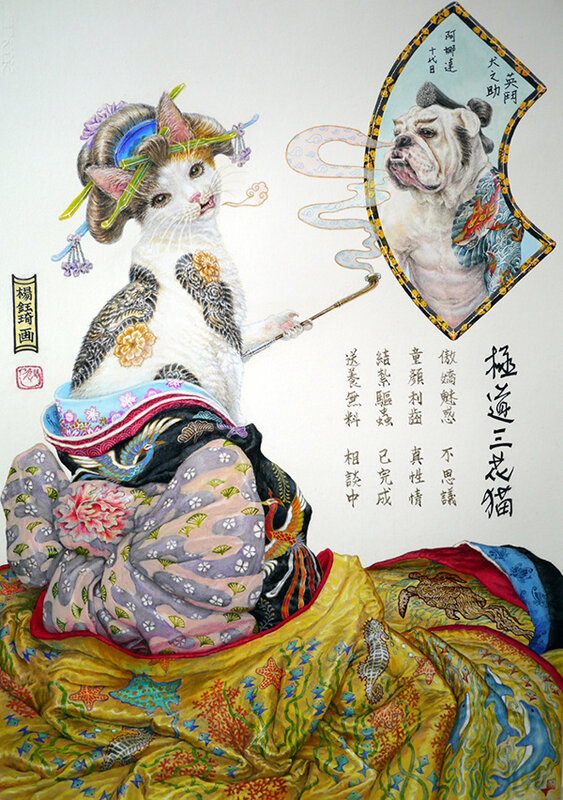 英鬥
犬之助
阿娜達
十代目
極道三花猫
傲嬌魅惑 不思議
童顏利齒 真性情
結紮驅蟲 已完成
送養無料 相談中
楊鈺琦画